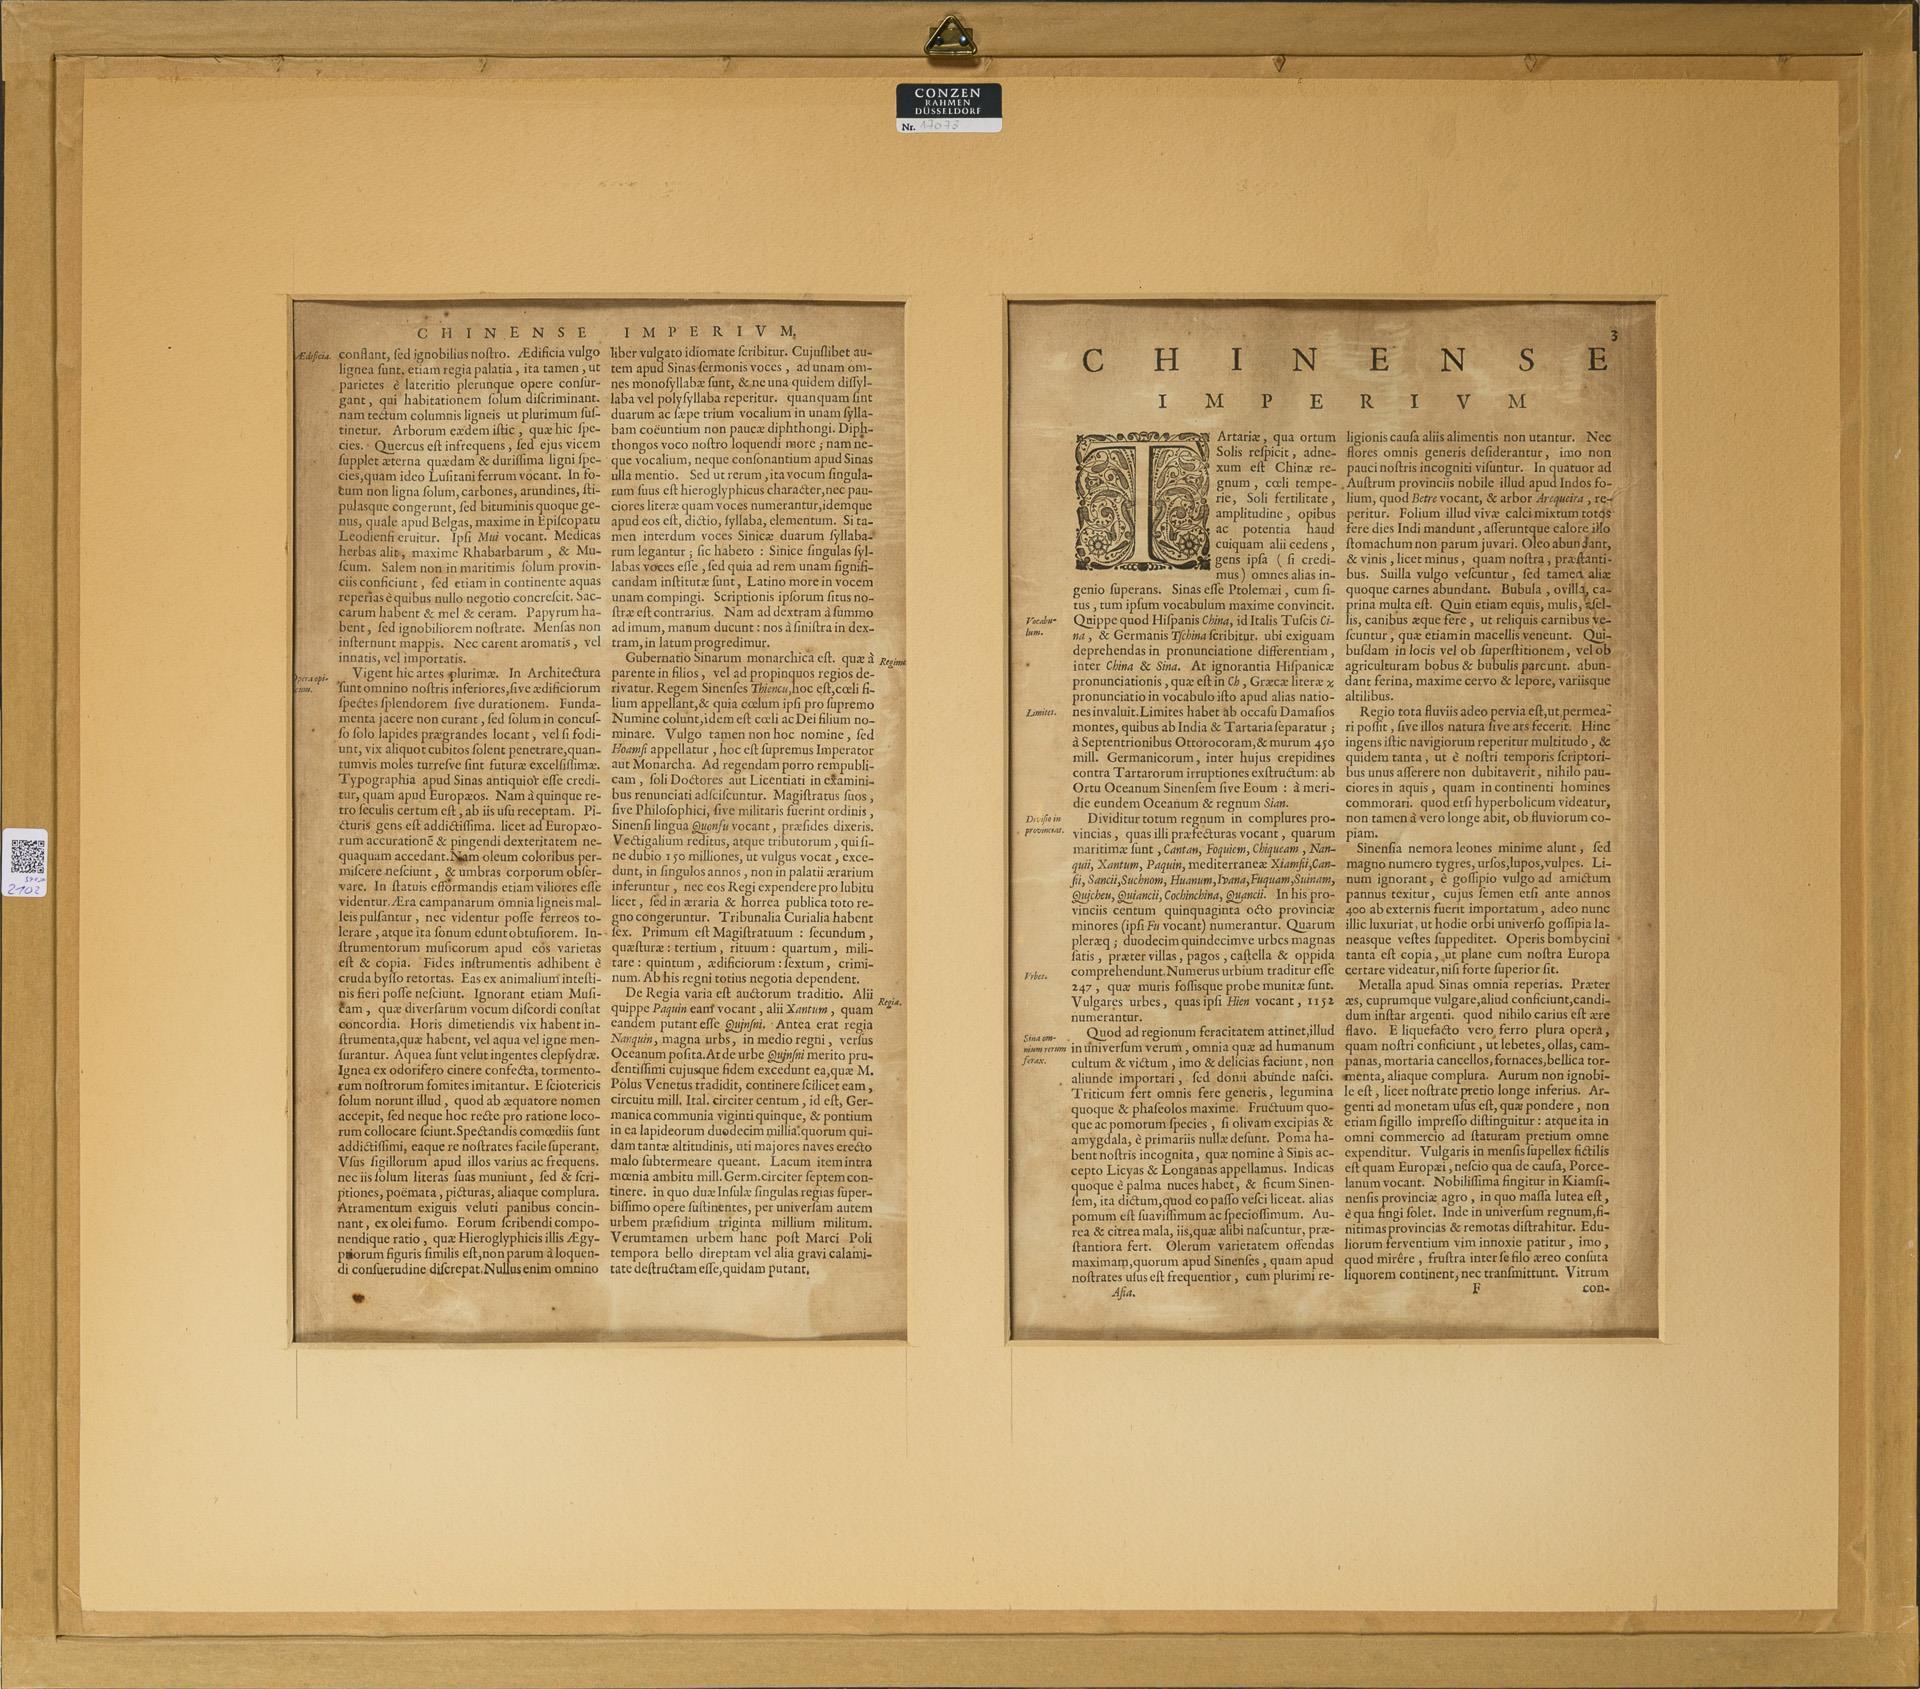 CONZEN
RAHMEN
DÜSSELDORF
Nr. 17073
2102
CHINENSE IMPERIVM,
Ædificia.
conſtant, ſed ignobilius noſtro. Ædificia vulgo
lignea ſunt, etiam regia palatia, ita tamen, ut
parietes è lateritio plerunque opere conſur-
gant, qui habitationem ſolum diſcriminant.
nam tectum columnis ligneis ut plurimum ſuſ-
tinetur. Arborum eædem iſtic, quæ hic ſpe-
cies. Quercus eſt infrequens, ſed ejus vicem
ſupplet æterna quædam & duriſſima ligni ſpe-
cies, quam ideo Luſitani ferrum vocant. In fo-
cum non ligna ſolum, carbones, arundines, ſti-
pulasque congerunt, ſed bituminis quoque ge-
nus, quale apud Belgas, maxime in Epiſcopatu
Leodienſi eruitur. Ipſi Mui vocant. Medicas
herbas alit, maxime Rhabarbarum, & Mu-
ſcum. Salem non in maritimis ſolum provin-
ciis conficiunt, ſed etiam in continente aquas
reperias è quibus nullo negotio concreſcit. Sac-
carum habent & mel & ceram. Papyrum ha-
bent, ſed ignobiliorem noſtrate. Menſas non
inſternunt mappis. Nec carent aromatis, vel
innatis, vel importatis.
Opera opi-
cium.
Vigent hic artes plurimæ. In Architectura
ſunt omnino noſtris inferiores, ſive ædificiorum
ſpectes ſplendorem ſive durationem. Funda-
menta jacere non curant, ſed ſolum in concuſ-
ſo ſolo lapides prægrandes locant, vel ſi fodi-
unt, vix aliquot cubitos ſolent penetrare, quan-
tumvis moles turreſve ſint futuræ excelſiſſimæ.
Typographia apud Sinas antiquior eſſe credi-
tur, quam apud Europæos. Nam à quinque re-
tro ſeculis certum eſt, ab iis uſu receptam. Pi-
cturis gens eſt addictiſſima. licet ad Europæo-
rum accurationē & pingendi dexteritatem ne-
quaquam accedant. Nam oleum coloribus per-
miſcere neſciunt, & umbras corporum obſer-
vare. In ſtatuis efformandis etiam viliores eſſe
videntur. Æra campanarum omnia ligneis mal-
leis pulſantur, nec videntur poſſe ferreos to-
lerare, atque ita ſonum edunt obtuſiorem. In-
ſtrumentorum muſicorum apud eos varietas
eſt & copia. Fides inſtrumentis adhibent è
cruda byſſo retortas. Eas ex animalium inteſti-
nis fieri poſſe neſciunt. Ignorant etiam Muſi-
cam, quæ diverſarum vocum diſcordi conſtat
concordia. Horis dimetiendis vix habent in-
ſtrumenta, quæ habent, vel aqua vel igne men-
ſurantur. Aquea ſunt velut ingentes clepſydræ.
Ignea ex odorifero cinere confecta, tormento-
rum noſtrorum fomites imitantur. E ſciotericis
ſolum norunt illud, quod ab æquatore nomen
accepit, ſed neque hoc recte pro ratione loco-
rum collocare ſciunt. Spectandis comœdiis ſunt
addictiſſimi, eaque re noſtrates facile ſuperant.
Vſus ſigillorum apud illos varius ac frequens.
nec iis ſolum literas ſuas muniunt, ſed & ſcri-
ptiones, poëmata, picturas, aliaque complura.
Atramentum exiguis veluti panibus concin-
nant, ex olei fumo. Eorum ſcribendi compo-
nendique ratio, quæ Hieroglyphicis illis Ægy-
ptiorum figuris ſimilis eſt, non parum à loquen-
di conſuetudine diſcrepat. Nullus enim omnino
liber vulgato idiomate ſcribitur. Cujuſlibet au-
tem apud Sinas ſermonis voces, ad unam om-
nes monoſyllabæ ſunt, & ne una quidem diſſyl-
laba vel polyſyllaba reperitur. quanquam ſint
duarum ac ſæpe trium vocalium in unam ſylla-
bam coëuntium non paucæ diphthongi. Diph-
thongos voco noſtro loquendi more; nam ne-
que vocalium, neque conſonantium apud Sinas
ulla mentio. Sed ut rerum, ita vocum ſingula-
rum ſuus eſt hieroglyphicus character, nec pau-
ciores literæ quam voces numerantur, idemque
apud eos eſt, dictio, ſyllaba, elementum. Si ta-
men interdum voces Sinicæ duarum ſyllaba-
rum legantur; ſic habeto: Sinice ſingulas ſyl-
labas voces eſſe, ſed quia ad rem unam ſignifi-
candam inſtitutæ ſunt, Latino more in vocem
unam compingi. Scriptionis ipſorum ſitus no-
ſtræ eſt contrarius. Nam ad dextram à ſummo
ad imum, manum ducunt: nos à ſiniſtra in dex-
tram, in latum progredimur.
Gubernatio Sinarum monarchica eſt. quæ à
parente in filios, vel ad propinquos regios de-
rivatur. Regem Sinenſes Thiencu, hoc eſt, cœli fi-
lium appellant, & quia cœlum ipſi pro ſupremo
Numine colunt, idem eſt cœli ac Dei filium no-
minare. Vulgo tamen non hoc nomine, ſed
Hoamſi appellatur, hoc eſt ſupremus Imperator
aut Monarcha. Ad regendam porro rempubli-
cam, ſoli Doctores aut Licentiati in examini-
bus renunciati adſciſcuntur. Magiſtratus ſuos,
ſive Philoſophici, ſive militaris fuerint ordinis,
Sinenſi lingua Quonfu vocant, præſides dixeris.
Vectigalium reditus, atque tributorum, qui ſi-
ne dubio 150 milliones, ut vulgus vocat, exce-
dunt, in ſingulos annos, non in palatii ærarium
inferuntur, nec eos Regi expendere pro lubitu
licet, ſed in æraria & horrea publica toto re-
gno congeruntur. Tribunalia Curialia habent
ſex. Primum eſt Magiſtratuum: ſecundum,
quæſturæ: tertium, rituum: quartum, mili-
tare: quintum, ædificiorum: ſextum, crimi-
num. Ab his regni totius negotia dependent.
De Regia varia eſt auctorum traditio. Alii
quippe Paquin eam vocant, alii Xantum, quam
eandem putant eſſe Quinſni. Antea erat regia
Nanquin, magna urbs, in medio regni, verſus
Oceanum poſita. At de urbe Quinſni merito pru-
dentiſſimi cujusque fidem excedunt ea, quæ M.
Polus Venetus tradidit, continere ſcilicet eam,
circuitu mill. Ital. circiter centum, id eſt, Ger-
manica communia viginti quinque, & pontium
in ea lapideorum duodecim millia. quorum qui-
dam tantæ altitudinis, uti majores naves erecto
malo ſubtermeare queant. Lacum item intra
mœnia ambitu mill. Germ. circiter ſeptem con-
tinere. in quo duæ Inſulæ ſingulas regias ſuper-
biſſimo opere ſuſtinentes, per univerſam autem
urbem præſidium triginta millium militum.
Verumtamen urbem hanc poſt Marci Poli
tempora bello direptam vel alia gravi calami-
tate deſtructam eſſe, quidam putant.
Regimē
Regia.
3
CHINENSE
IMPERIVM
TArtariæ, qua ortum
Solis reſpicit, adne-
xum eſt Chinæ re-
gnum, cœli tempe-
rie, Soli fertilitate,
amplitudine, opibus
ac potentia haud
cuiquam alii cedens,
gens ipſa (ſi credi-
mus) omnes alias in-
genio ſuperans. Sinas eſſe Ptolemæi, cum ſi-
tus, tum ipſum vocabulum maxime convincit.
Vocabu-
lum.
Quippe quod Hiſpanis China, id Italis Tuſcis Ci-
na, & Germanis Tſchina ſcribitur. ubi exiguam
deprehendas in pronunciatione differentiam,
inter China & Sina. At ignorantia Hiſpanicæ
pronunciationis, quæ eſt in Ch, Græcæ literæ χ
pronunciatio in vocabulo iſto apud alias natio-
Limites.
nes invaluit. Limites habet ab occaſu Damaſios
montes, quibus ab India & Tartaria ſeparatur;
à Septentrionibus Ottorocoram, & murum 450
mill. Germanicorum, inter hujus crepidines
contra Tartarorum irruptiones exſtructum: ab
Ortu Oceanum Sinenſem ſive Eoum: à meri-
die eundem Oceanum & regnum Sian.
Diviſio in
provincias.
Dividitur totum regnum in complures pro-
vincias, quas illi præfecturas vocant, quarum
maritimæ ſunt, Cantan, Foquiem, Chiqueam, Nan-
quii, Xantum, Paquin, mediterraneæ Xiamſii, Can-
ſii, Sancii, Suchnom, Huanum, Ivana, Fuquam, Suinam,
Quicheu, Quiancii, Cochinchina, Quancii. In his pro-
vinciis centum quinquaginta octo provinciæ
minores (ipſi Fu vocant) numerantur. Quarum
pleræq; duodecim quindecimve urbes magnas
ſatis, præter villas, pagos, caſtella & oppida
Vrbes.
comprehendunt. Numerus urbium traditur eſſe
247, quæ muris foſſisque probe munitæ ſunt.
Vulgares urbes, quas ipſi Hien vocant, 1152
numerantur.
Sina om-
nium rerum
ferax.
Quod ad regionum feracitatem attinet, illud
in univerſum verum, omnia quæ ad humanum
cultum & victum, imo & delicias faciunt, non
aliunde importari, ſed domi abunde naſci.
Triticum fert omnis fere generis, legumina
quoque & phaſeolos maxime. Fructuum quo-
que ac pomorum ſpecies, ſi olivam excipias &
amygdala, è primariis nullæ deſunt. Poma ha-
bent noſtris incognita, quæ nomine à Sinis ac-
cepto Licyas & Longanas appellamus. Indicas
quoque è palma nuces habet, & ficum Sinen-
ſem, ita dictum, quod eo paſſo veſci liceat. alias
pomum eſt ſuaviſſimum ac ſpecioſſimum. Au-
rea & citrea mala, iis, quæ alibi naſcuntur, præ-
ſtantiora fert. Olerum varietatem offendas
maximam, quorum apud Sinenſes, quam apud
noſtrates uſus eſt frequentior, cum plurimi re-
ligionis cauſa aliis alimentis non utantur. Nec
flores omnis generis deſiderantur, imo non
pauci noſtris incogniti viſuntur. In quatuor ad
Auſtrum provinciis nobile illud apud Indos fo-
lium, quod Betre vocant, & arbor Arequeira, re-
peritur. Folium illud vivæ calci mixtum totos
fere dies Indi mandunt, aſſeruntque calore illo
ſtomachum non parum juvari. Oleo abundant,
& vinis, licet minus, quam noſtra, præſtanti-
bus. Suilla vulgo veſcuntur, ſed tamen aliæ
quoque carnes abundant. Bubula, ovilla, ca-
prina multa eſt. Quin etiam equis, mulis, aſel-
lis, canibus æque fere, ut reliquis carnibus ve-
ſcuntur, quæ etiam in macellis veneunt. Qui-
buſdam in locis vel ob ſuperſtitionem, vel ob
agriculturam bobus & bubulis parcunt. abun-
dant ferina, maxime cervo & lepore, variisque
altilibus.
Regio tota fluviis adeo pervia eſt, ut permea-
ri poſſit, ſive illos natura ſive ars fecerit. Hinc
ingens iſtic navigiorum reperitur multitudo, &
quidem tanta, ut è noſtri temporis ſcriptori-
bus unus aſſerere non dubitaverit, nihilo pau-
ciores in aquis, quam in continenti homines
commorari. quod etſi hyperbolicum videatur,
non tamen à vero longe abit, ob fluviorum co-
piam.
Sinenſia nemora leones minime alunt, ſed
magno numero tygres, urſos, lupos, vulpes. Li-
num ignorant, è goſſipio vulgo ad amictum
pannus texitur, cujus ſemen etſi ante annos
400 ab externis fuerit importatum, adeo nunc
illic luxuriat, ut hodie orbi univerſo goſſipia la-
neasque veſtes ſuppeditet. Operis bombycini
tanta eſt copia, ut plane cum noſtra Europa
certare videatur, niſi forte ſuperior ſit.
Metalla apud Sinas omnia reperias. Præter
æs, cuprumque vulgare, aliud conficiunt, candi-
dum inſtar argenti. quod nihilo carius eſt ære
flavo. E liquefacto vero ferro plura opera,
quam noſtri conficiunt, ut lebetes, ollas, cam-
panas, mortaria cancellos, fornaces, bellica tor-
menta, aliaque complura. Aurum non ignobi-
le eſt, licet noſtrate pretio longe inferius. Ar-
genti ad monetam uſus eſt, quæ pondere, non
etiam ſigillo impreſſo diſtinguitur: atque ita in
omni commercio ad ſtaturam pretium omne
expenditur. Vulgaris in menſis ſupellex fictilis
eſt quam Europæi, neſcio qua de cauſa, Porce-
lanum vocant. Nobiliſſima fingitur in Kiamſi-
nenſis provinciæ agro, in quo maſſa lutea eſt,
è qua fingi ſolet. Inde in univerſum regnum, fi-
nitimas provincias & remotas diſtrahitur. Edu-
liorum ferventium vim innoxie patitur, imo,
quod mirêre, fruſtra inter ſe filo æreo conſuta
liquorem continent, nec tranſmittunt. Vitrum
Aſia.
F
con-